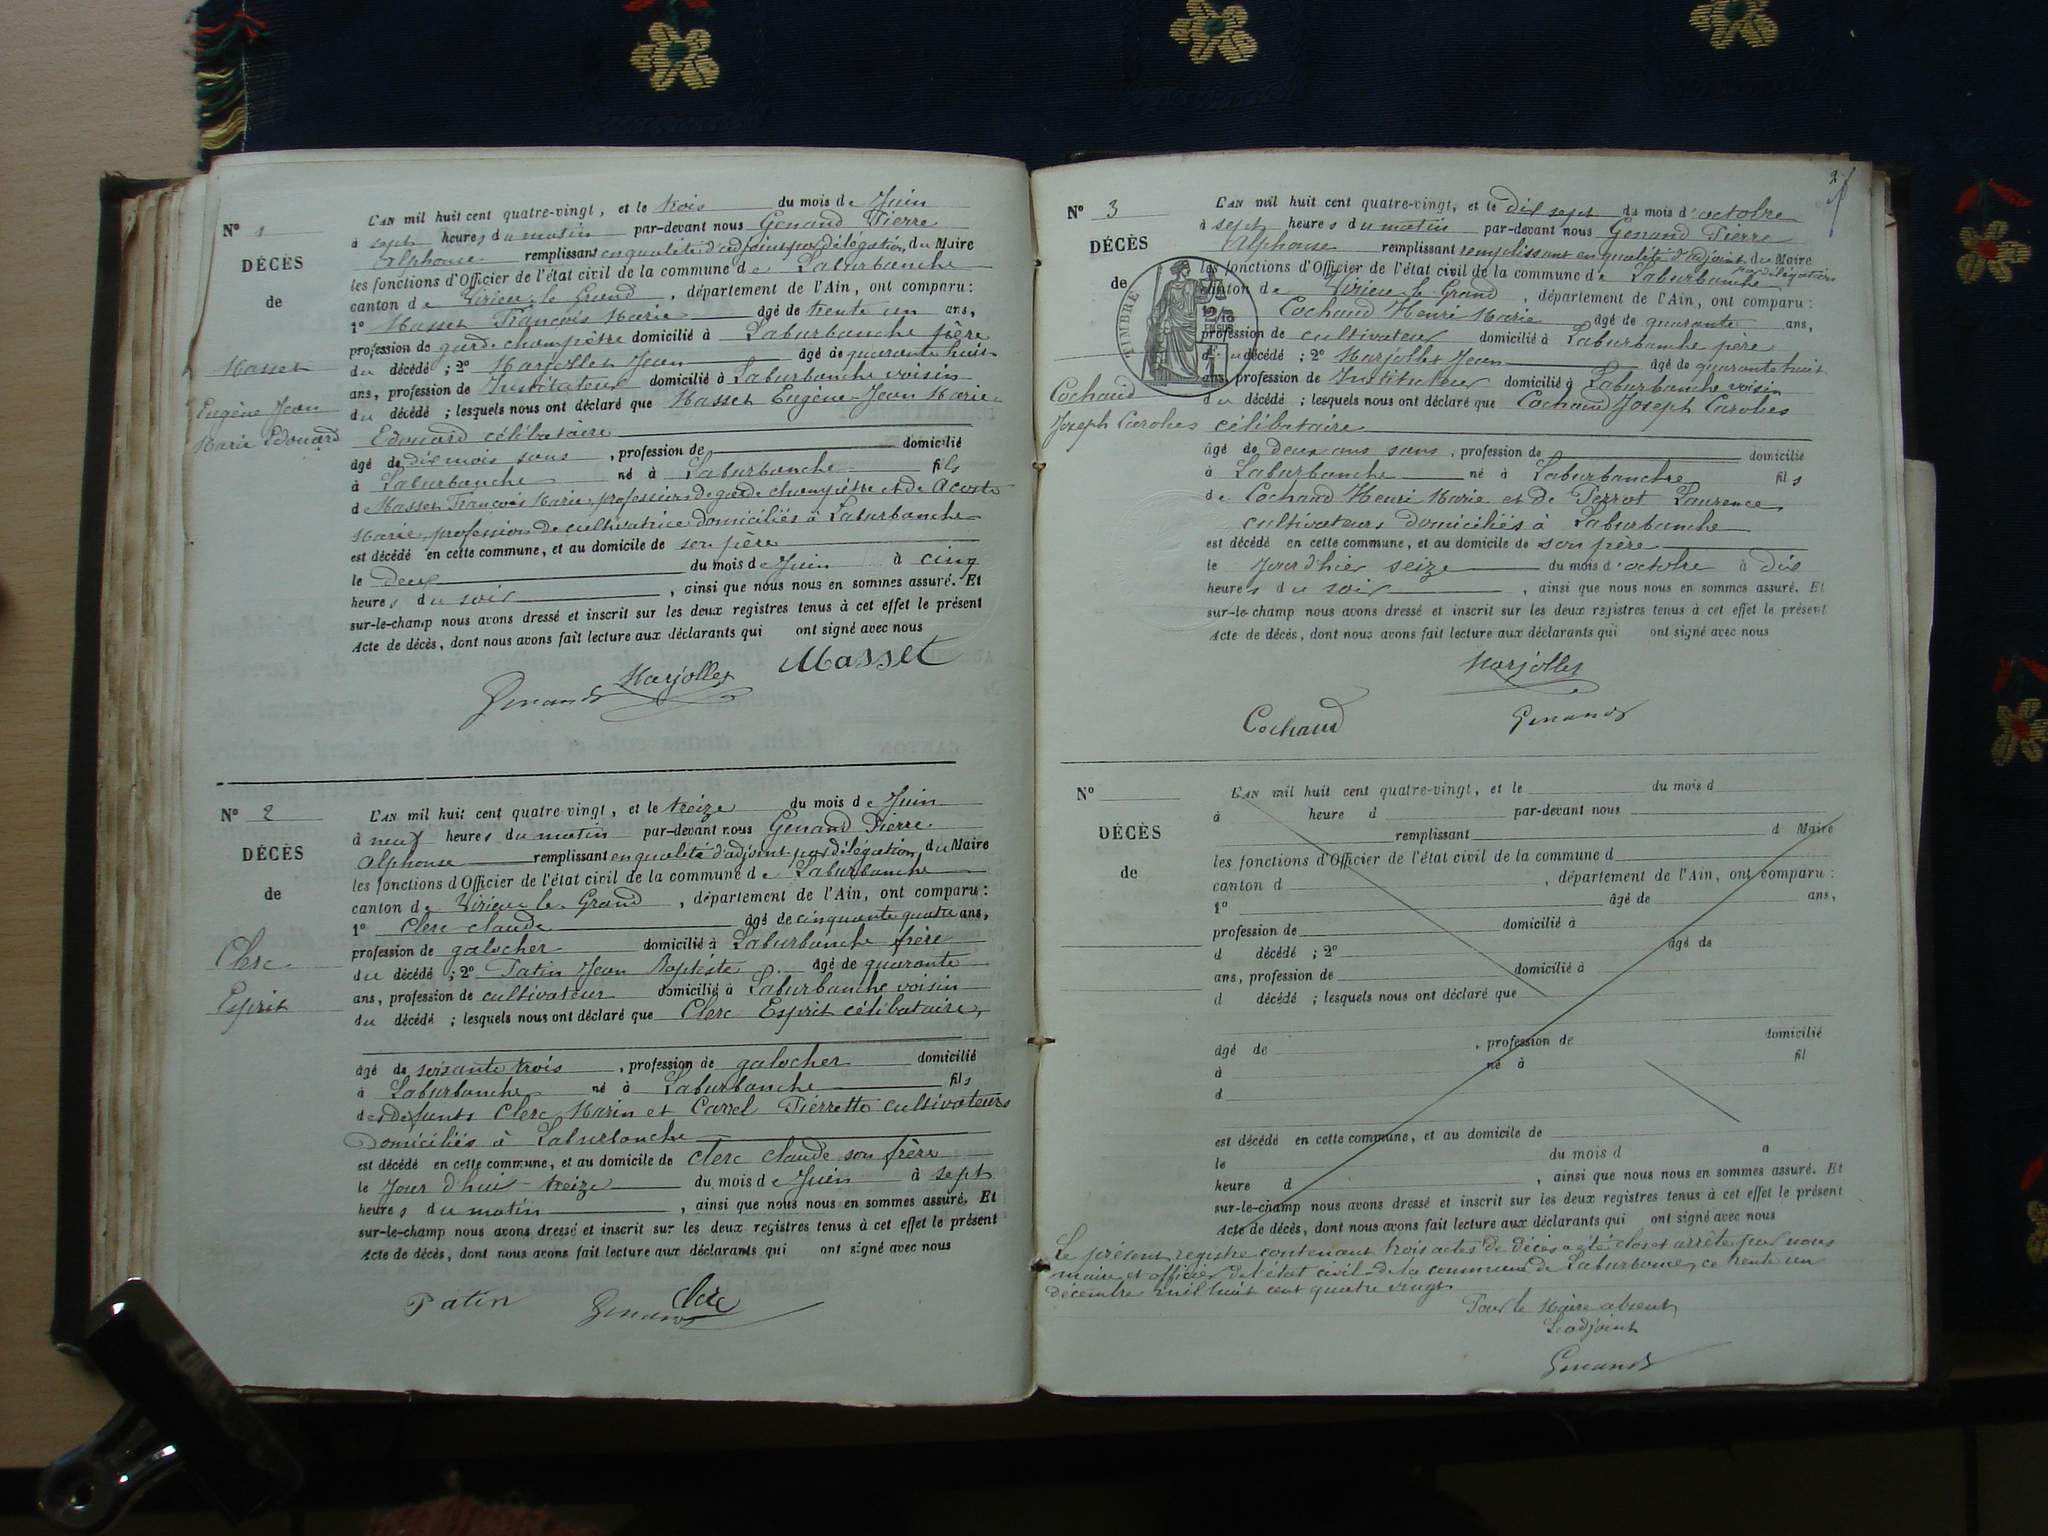 N° 1
DÉCÈS
de
Masset
Eugène Jean
Marie Edouard
L'AN mil huit cent quatre-vingt, et le trois du mois de Juin
à sept heures du matin par-devant nous Genand Pierre
Alphonse remplissant en qualité d'adjoint par délégation, du Maire
les fonctions d'Officier de l'état civil de la commune de Laburbanche
canton de Virieu-le-Grand, département de l'Ain, ont comparu :
1° Masset François Marie âgé de trente un ans,
profession de garde champêtre domicilié à Laburbanche père
du décédé ; 2° Marjollet Jean âgé de quarante huit
ans, profession de Instituteur domicilié à Laburbanche voisin
du décédé ; lesquels nous ont déclaré que Masset Eugène-Jean Marie
Edouard célibataire
âgé de dix mois sans, profession de domicilié
à Laburbanche né à Laburbanche fils
de Masset François Marie, profession de garde champêtre et de Acoste
Marie, profession de cultivatrice domiciliés à Laburbanche
est décédé en cette commune, et au domicile de son père
le deux du mois de Juin à cinq
heures du soir, ainsi que nous nous en sommes assuré. Et
sur-le-champ nous avons dressé et inscrit sur les deux registres tenus à cet effet le présent
Acte de décès, dont nous avons fait lecture aux déclarants qui ont signé avec nous
Genand Marjollet Masset
N° 2
DÉCÈS
de
Clerc
Esprit
L'AN mil huit cent quatre-vingt, et le treize du mois de Juin
à neuf heures du matin par-devant nous Genand Pierre
Alphonse remplissant en qualité d'adjoint par délégation, du Maire
les fonctions d'Officier de l'état civil de la commune de Laburbanche
canton de Virieu le Grand, département de l'Ain, ont comparu :
1° Clerc claude âgé de cinquante quatre ans,
profession de galocher domicilié à Laburbanche frère
du décédé ; 2° Patin Jean Baptiste âgé de quarante
ans, profession de cultivateur domicilié à Laburbanche voisin
du décédé ; lesquels nous ont déclaré que Clerc Esprit célibataire,
âgé de soixante trois, profession de galocher domicilié
à Laburbanche né à Laburbanche fils
des défunts Clerc Marin et Carrel Pierrette cultivateurs
domiciliés à Laburbanche
est décédé en cette commune, et au domicile de clerc claude son frère
le Jour d'hui treize du mois de Juin à sept
heures du matin, ainsi que nous nous en sommes assuré. Et
sur-le-champ nous avons dressé et inscrit sur les deux registres tenus à cet effet le présent
Acte de décès, dont nous avons fait lecture aux déclarants qui ont signé avec nous
Patin Genand clerc
2
N° 3
DÉCÈS
de
TIMBRE
Cochaud
Joseph Carolus
L'AN mil huit cent quatre-vingt, et le dix sept du mois d'octobre
à sept heures du matin par-devant nous Genand Pierre
Alphonse remplissant remplissant en qualité d'adjoint du Maire
par délégation
les fonctions d'Officier de l'état civil de la commune de Laburbanche
canton de Virieu-le-Grand, département de l'Ain, ont comparu :
Cochaud Henri Marie âgé de quarante ans,
profession de cultivateur domicilié à Laburbanche père
du décédé ; 2° Marjollet Jean âgé de quarante huit
ans, profession de Instituteur domicilié à Laburbanche voisin
du décédé ; lesquels nous ont déclaré que Cochaud Joseph Carolus
célibataire
âgé de deux ans sans, profession de domicilié
à Laburbanche né à Laburbanche fils
de Cochaud Henri Marie et de Perrot Laurence
cultivateurs domiciliés à Laburbanche
est décédé en cette commune, et au domicile de son père
le Jour d'hier seize du mois d'octobre à dix
heures du soir, ainsi que nous nous en sommes assuré. Et
sur-le-champ nous avons dressé et inscrit sur les deux registres tenus à cet effet le présent
Acte de décès, dont nous avons fait lecture aux déclarants qui ont signé avec nous
Marjollet
Cochaud Genand
N°
DÉCÈS
de
L'AN mil huit cent quatre-vingt, et le du mois d
à heure d par-devant nous
remplissant d Maire
les fonctions d'Officier de l'état civil de la commune d
canton d, département de l'Ain, ont comparu :
1° âgé de ans,
profession de domicilié à
d décédé ; 2° âgé de
ans, profession de domicilié à
d décédé ; lesquels nous ont déclaré que
âgé de, profession de domicilié
à né à fil
d
est décédé en cette commune, et au domicile de
le du mois d à
heure d, ainsi que nous nous en sommes assuré. Et
sur-le-champ nous avons dressé et inscrit sur les deux registres tenus à cet effet le présent
Acte de décès, dont nous avons fait lecture aux déclarants qui ont signé avec nous
Le présent registre contenant trois actes de décès a été clos et arrêté par nous
maire et officier de l'état civil de la commune de Laburbanne, ce trente un
décembre mil huit cent quatre vingt
Pour le Maire absent,
L'adjoint
Genand